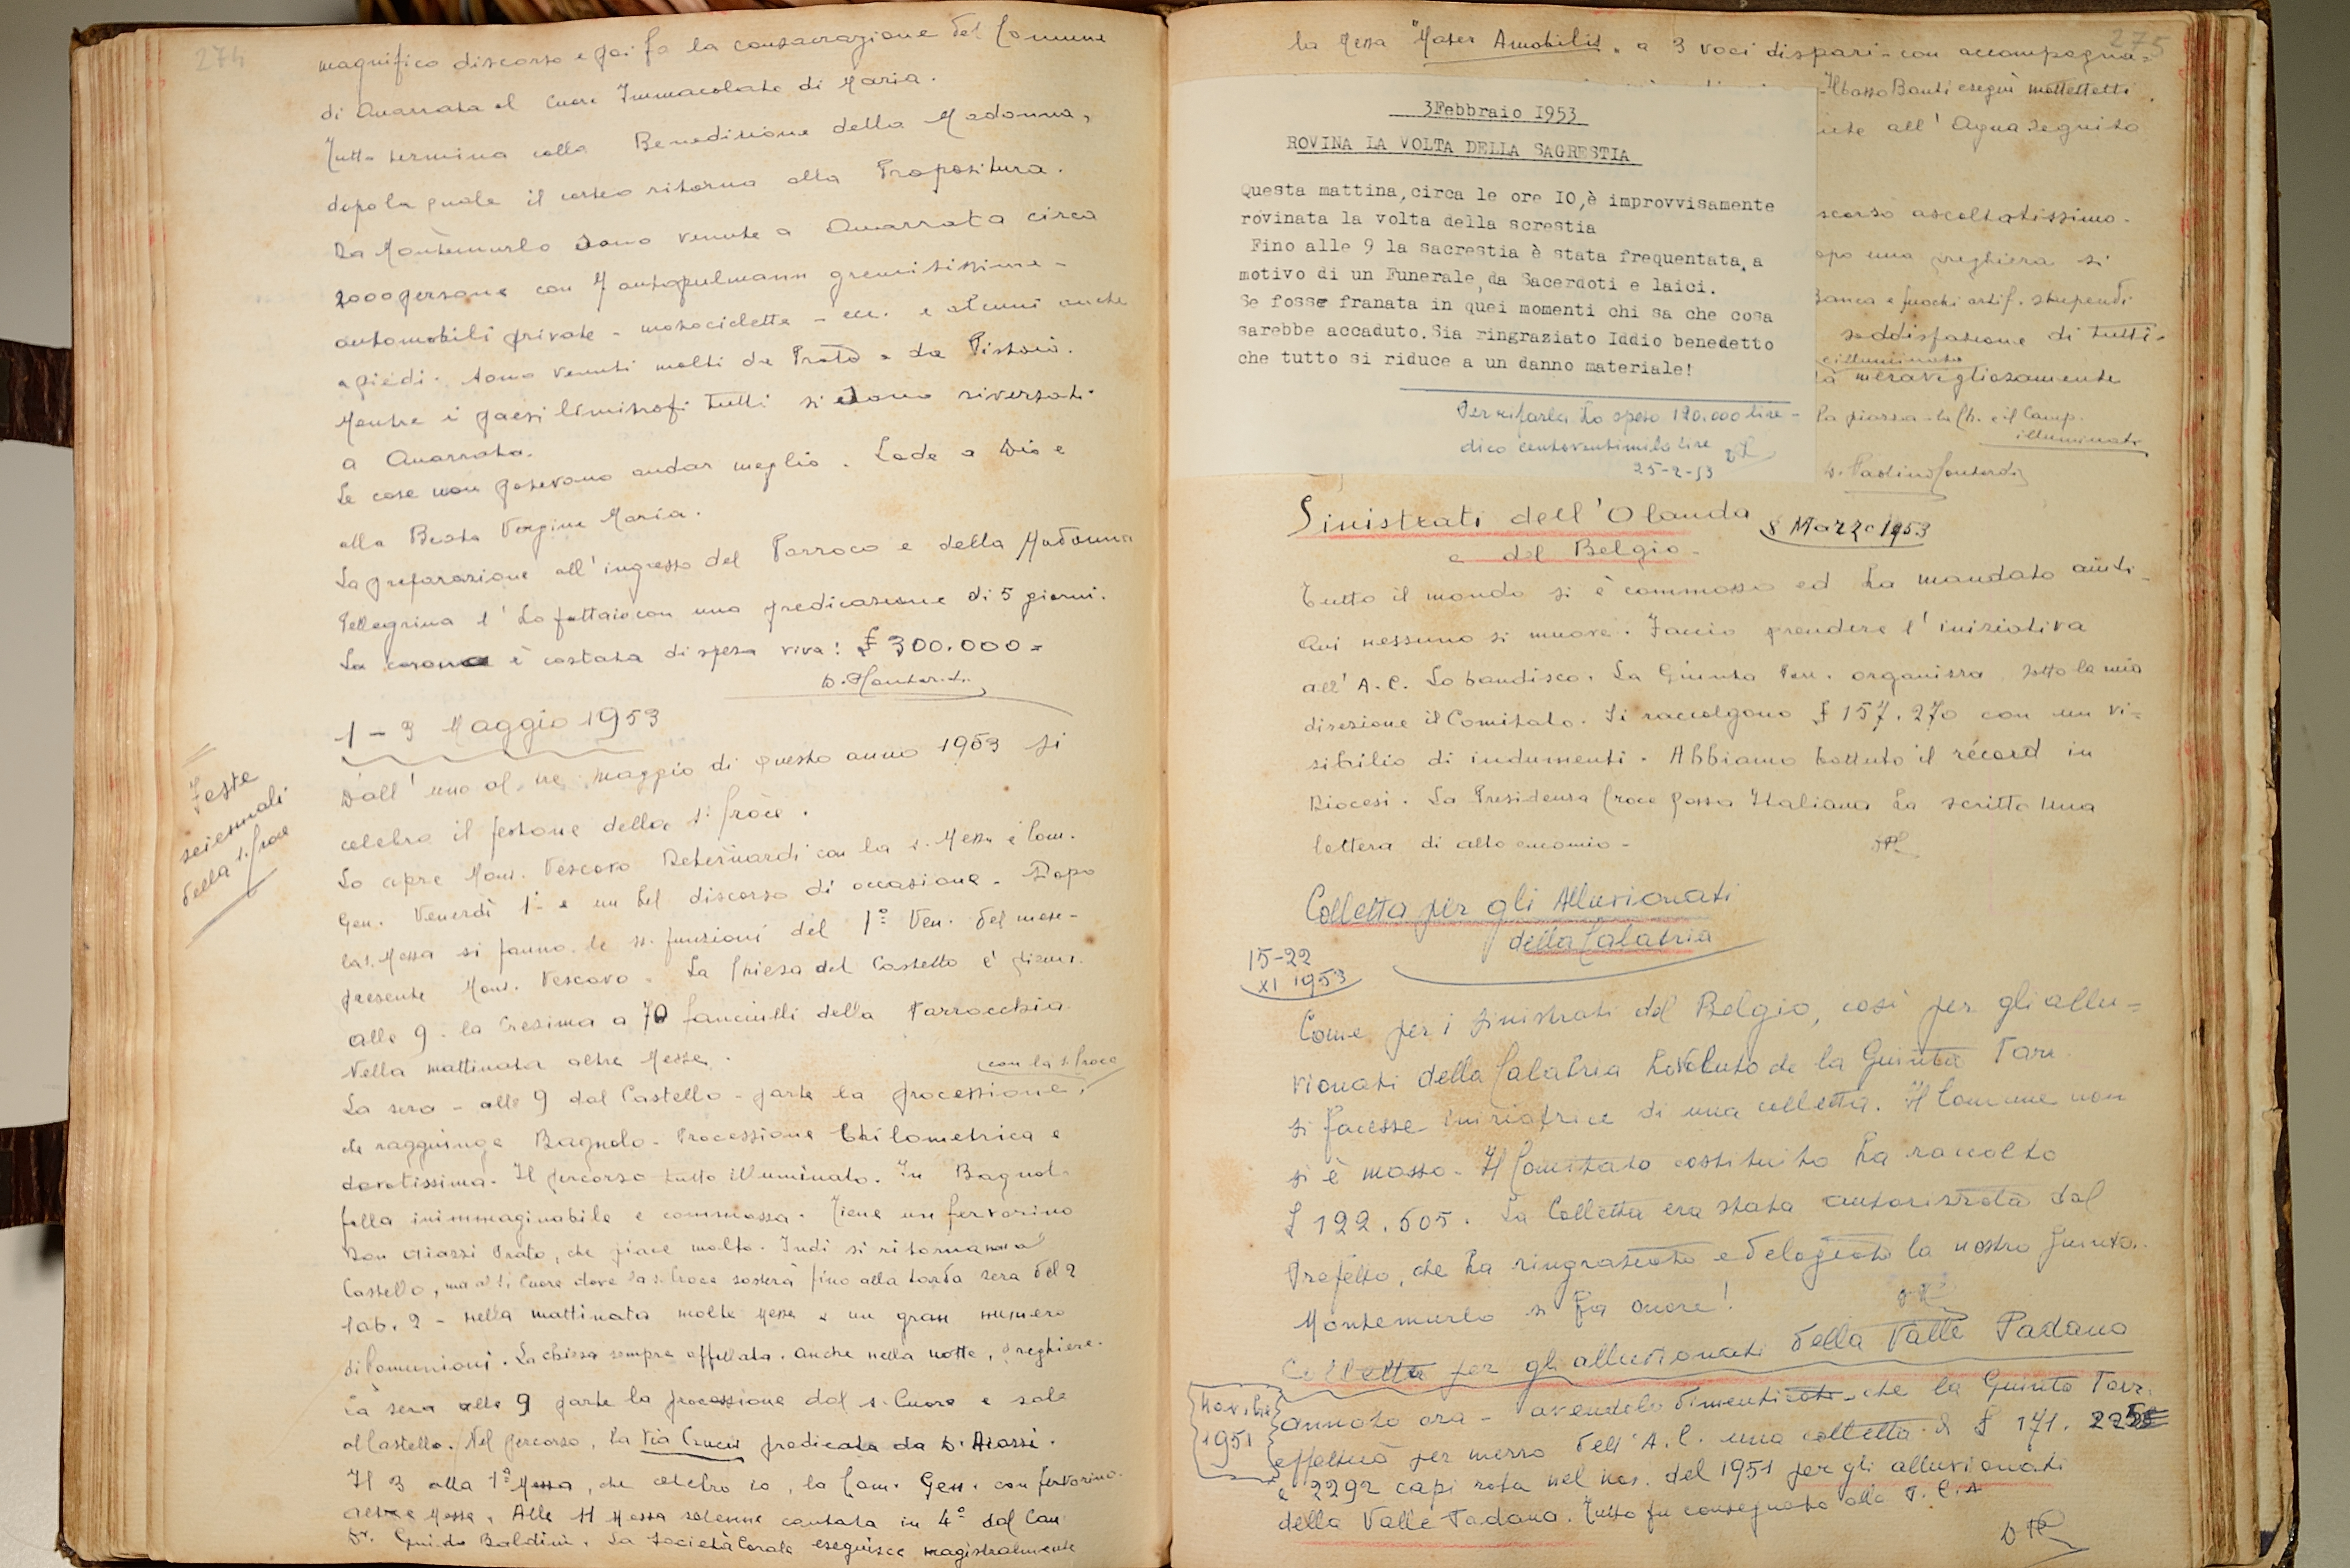 274
magnifico discorso e poi fa la consacrazione del Comune
di Quarrata al Cuore Immacolato di Maria.
Tutto termina colla Benedizione della Madonna,
dopo la quale il corteo ritorna alla Propositura.
Da Montemurlo sono venute a Quarrata circa
2000 persone con 7 autopulmann gremitissime -
automobili private - motociclette - ecc. e alcuni anche
a piedi. Sono venuti molti da Prato e da Pistoia.
Mentre i paesi limitrofi tutti si sono riversati
a Quarrata.
Le cose non potevano andar meglio. Lode a Dio e
alla Beata Vergine Maria.
La preparazione all'ingresso del Parroco e della Madonna
Pellegrina l'ho fatta io con una predicazione di 5 giorni.
La corona è costata di spesa viva: £ 300.000=
1-3 Maggio 1953
Feste
seiennali
della s. Croce
Dall'uno al tre maggio di questo anno 1953 si
celebra il festone della s. Croce.
Lo apre Mons. Vescovo Debernardi con la s. Messa e Com.
Gen. Venerdì 1° e un bel discorso di occasione. Dopo
la s. Messa si fanno le ss. funzioni del 1° Ven. del mese -
presente Mons. Vescovo. La Chiesa del Castello è piena.
alle 9. la Cresima a 70 fanciulli della Parrocchia
Nella mattinata altre Messe.
con la s. Croce
La sera - alle 9 dal Castello - parte la processione,
che raggiunge Bagnolo. Processione chilometrica e
devotissima. Il percorso tutto illuminato. In Bagnolo
folla inimmaginabile e commossa. Tiene un fervorino
Don Aiazzi Prato, che piace molto. Indi si ritorna non al
Castello, ma al S. Cuore dove la s. Croce sosterà fino alla tarda sera del 2
Sab. 2 - nella mattinata molte Messe e un gran numero
di Comunioni. La chiesa sempre affollata. Anche nella notte, preghiere.
La sera alle 9 parte la processione dal s. Cuore e sale
al Castello. Nel percorso, la Via Crucis predicata da D. Aiazzi.
Il 3 alla 1ª Messa, che celebro io, la Com. Gen. con fervorino.
altre Messe. Alle 11 Messa solenne cantata in 4° dal Can.
Guido Baldini. La Società Corale eseguisce magistralmente
275
la Messa "Mater Amabilis" a 3 voci dispari - con accompagna=
Il basso Banti eseguì mottettetti.
all'
scorso ascoltatissimo.
opo una preghiera si
Banca e fuochi artif. stupendi
soddisfazione di tutti.
e illuminata
tà meravigliosamente
la piazza - la Ch. e il Camp.
illuminati
3Febbraio I953
ROVINA LA VOLTA DELLA SAGRESTIA
Questa mattina,circa le ore IO,è improvvisamente
rovinata la volta della screstia
Fino alle 9 la sacrestia è stata frequentata,a
motivo di un Funerale,da Sacerdoti e laici.
Se fosse franata in quei momenti chi sa che cosa
sarebbe accaduto.Sia ringraziato Iddio benedetto
che tutto si riduce a un danno materiale!
Per rifarla ho speso 120.000 lire -
dico centoventimila lire
25-2-53
Sinistrati dell'Olanda 8 Marzo 1953
e del Belgio -
Tutto il mondo si è commosso ed ha mandato aiuti -
Qui nessuno si muove. Faccio prendere l'iniziativa
all'A.C. Lo bandisco. La Giunta Parr. organizza sotto la mia
direzione il Comitato. Si raccolgono £ 157.270 con un vi=
sibilio di indumenti. Abbiamo battuto il récord in
Diocesi. La Presidenza Croce Rossa Italiana ha scritto una
lettera di alto encomio -
Colletta per gli Alluvionati
della Calabria
15-22
XI 1953
Come per i sinistrati del Belgio, così per gli allu=
vionati della Calabria ho voluto che la Giunta Parr.
si facesse iniziatrice di una colletta. Il Comune non
si è mosso. Il Comitato costituito ha raccolto
£ 122.605. La Colletta era stata autorizzata dal
Prefetto, che ha ringraziato ed elogiato la nostra Giunta.
Montemurlo si fa onore!
Colletta per gli alluvionati della Valle Padana
Novembre
1951
annoto ora - avendolo dimenticato - che la Giunta Parr.
effettuò per mezzo dell'A.C. una colletta di £ 171.
e 2292 capi roba nel nov. del 1951 per gli alluvionati
della Valle Padana. Tutto fu consegnato alla P.C.A